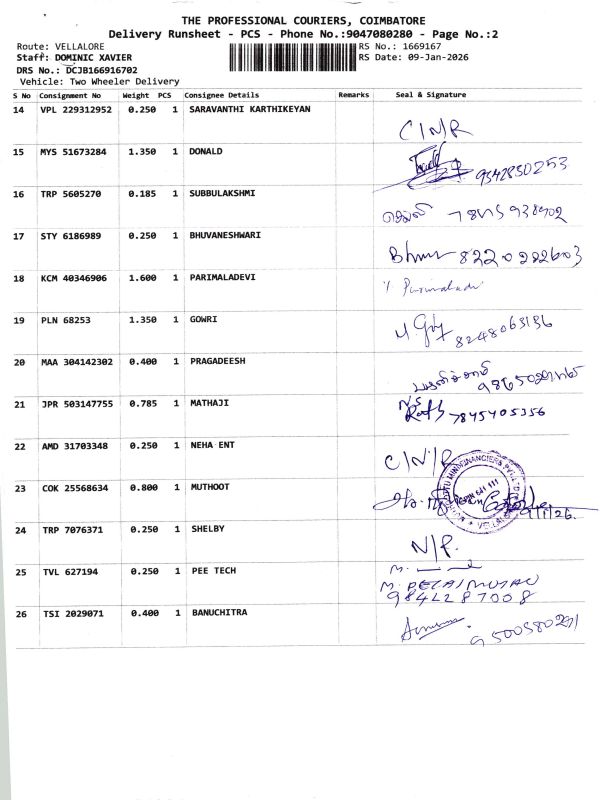 THE PROFESSIONAL COURIERS, COIMBATORE
Delivery Runsheet - PCS - Phone No.:9047080280 - Page No.:2
Route: VELLALORE RS No.: 1669167
Staff: DOMINIC XAVIER RS Date: 09-Jan-2026
DRS No.: DCJB166916702
Vehicle: Two Wheeler Delivery
S No Consignment No Weight PCS Consignee Details Remarks Seal & Signature
14 VPL 229312952 0.250 1 SARAVANTHI KARTHIKEYAN
C/N/R
15 MYS 51673284 1.350 1 DONALD
9342830253
16 TRP 5605270 0.185 1 SUBBULAKSHMI
17 STY 6186989 0.250 1 BHUVANESHWARI
8220282603
18 KCM 40346906 1.600 1 PARIMALADEVI
19 PLN 68253 1.350 1 GOWRI
8248063136
20 MAA 304142302 0.400 1 PRAGADEESH
21 JPR 503147755 0.785 1 MATHAJI
7845405356
22 AMD 31703348 0.250 1 NEHA ENT
C/N/R
23 COK 25568634 0.800 1 MUTHOOT
9/1/26.
24 TRP 7076371 0.250 1 SHELBY
N/P.
25 TVL 627194 0.250 1 PEE TECH
9841287008
26 TSI 2029071 0.400 1 BANUCHITRA